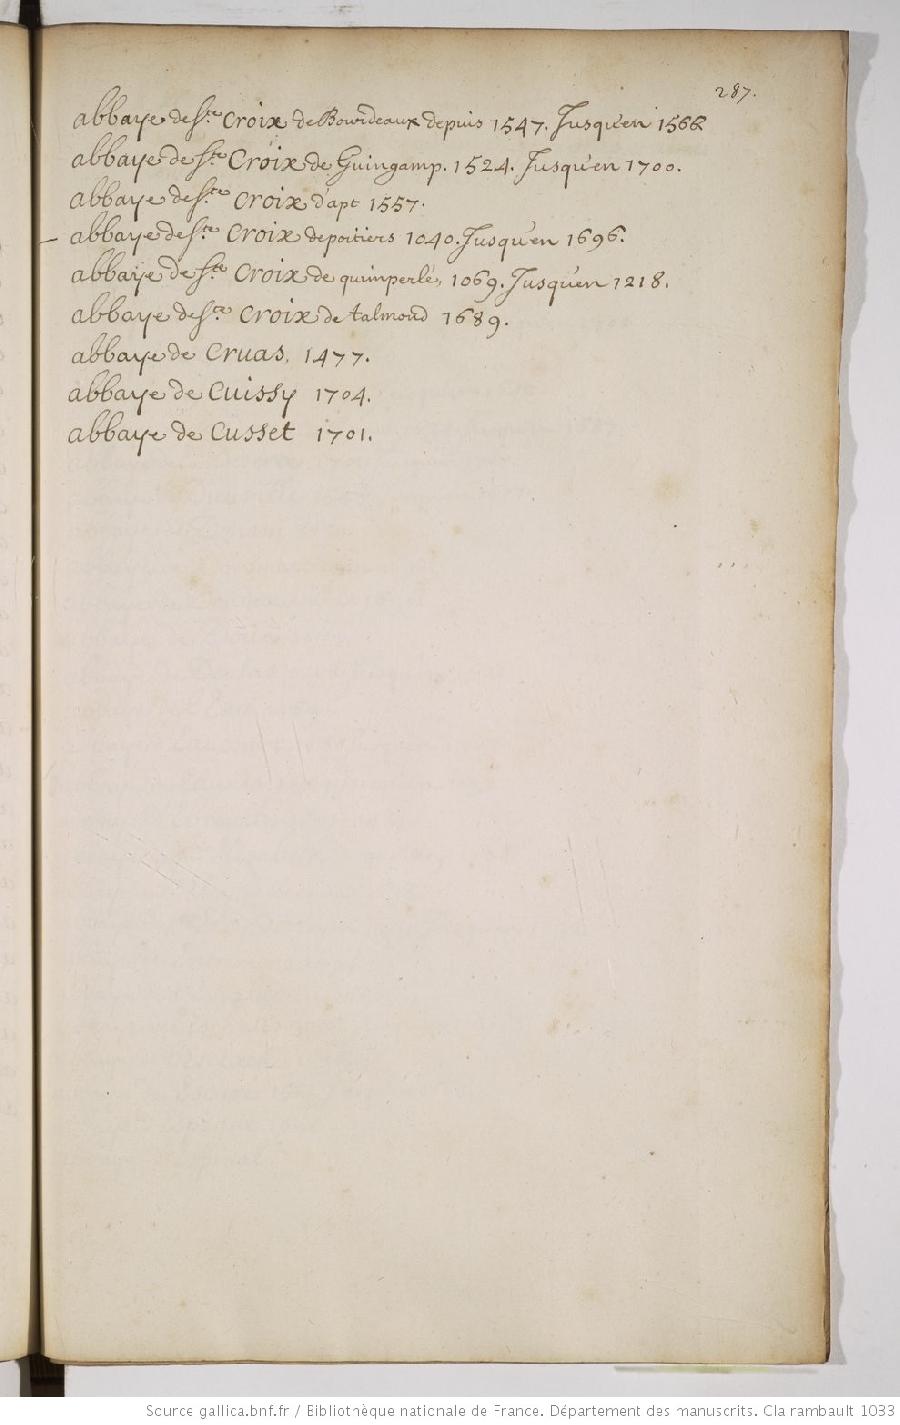 287.
abbaye de Ste Croix de Bourdeaux depuis 1547. Jusqu'en 1566
abbaye de Ste Croix de Guingamp. 1524. Jusqu'en 1700.
abbaye de Ste Croix d'apt 1557.
abbaye de Ste Croix de poitiers 1040. Jusqu'en 1696.
abbaye de Ste Croix de quimperlé, 1069. Jusqu'en 1218.
abbaye de Ste Croix de talmond 1689.
abbaye de Cruas, 1477.
abbaye de Cuissy 1704.
abbaye de Cusset 1701.
Source gallica.bnf.fr / Bibliothèque nationale de France. Département des manuscrits. Clairambault 1033